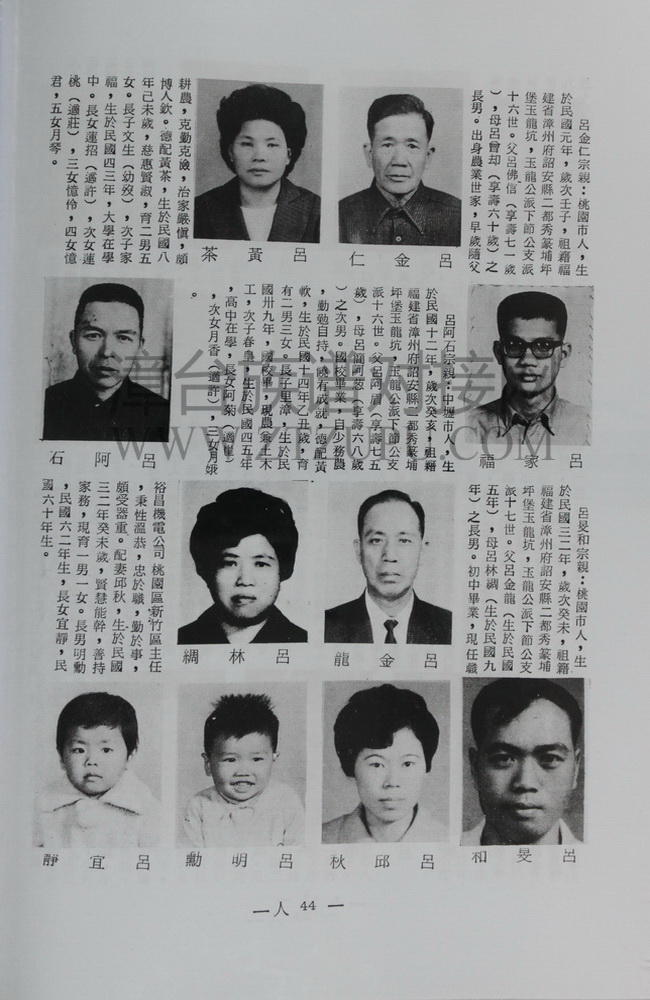 呂金仁宗親：桃園市人，生
於民國元年，歲次壬子，祖籍福
建省漳州府詔安縣二都秀篆埔坪
堡玉龍坑，玉龍公派下節公支派
十六世。父呂佛信（享壽七一歲
），母呂曾却（享壽六十歲）之
長男。出身農業世家，早歲隨父
呂金仁
呂黃茶
耕農，克勤克儉，治家嚴慎，頗
博人欽。德配黃茶，生於民國八
年己未歲，慈惠賢淑，育二男五
女。長子文生（幼歿），次子家
福，生於民國四三年，大學在學
中。長女蓮招（適許），次女蓮
桃（適莊），三女憶伶，四女憶
君，五女月琴。
呂家福
呂阿石宗親：中壢市人，生
於民國十二年，歲次癸亥，祖籍
福建省漳州府詔安縣二都秀篆埔
坪堡玉龍坑，玉龍公派下節公支
派十六世。父呂阿眉（享壽七五
歲），母呂簡阿葱（享壽六八歲
）之次男。國校畢業，自少務農
，勤勉自持，饒有成就，德配黃
軟，生於民國十四年乙丑歲，育
有二男三女。長子里漳，生於民
國卅九年，國校畢，現農兼土木
工，次子春皇，生於民國四五年
，高中在學，長女阿菊（適崖）
，次女月香（適許），三女月娥
。
呂阿石
呂旻和宗親：桃園市人，生
於民國三二年，歲次癸未，祖籍
福建省漳州府詔安縣二都秀篆埔
坪堡玉龍坑，玉龍公派下節公支
派十七世。父呂金龍（生於民國
五年），母呂林稠（生於民國九
年）之長男。初中畢業，現任職
呂金龍
呂林稠
裕昌機電公司 桃園區新竹區主任
，秉性溫恭，忠於職，勤於事，
頗受器重。配妻邱秋，生於民國
三二年癸未歲，賢慧能幹，善持
家務，現育一男一女。長男明勳
，民國六二年生，長女宜靜，民
國六十年生。
呂旻和
呂邱秋
呂明勳
呂宜靜
一人 44 一
漳台族譜对接
www.ztzupu.com